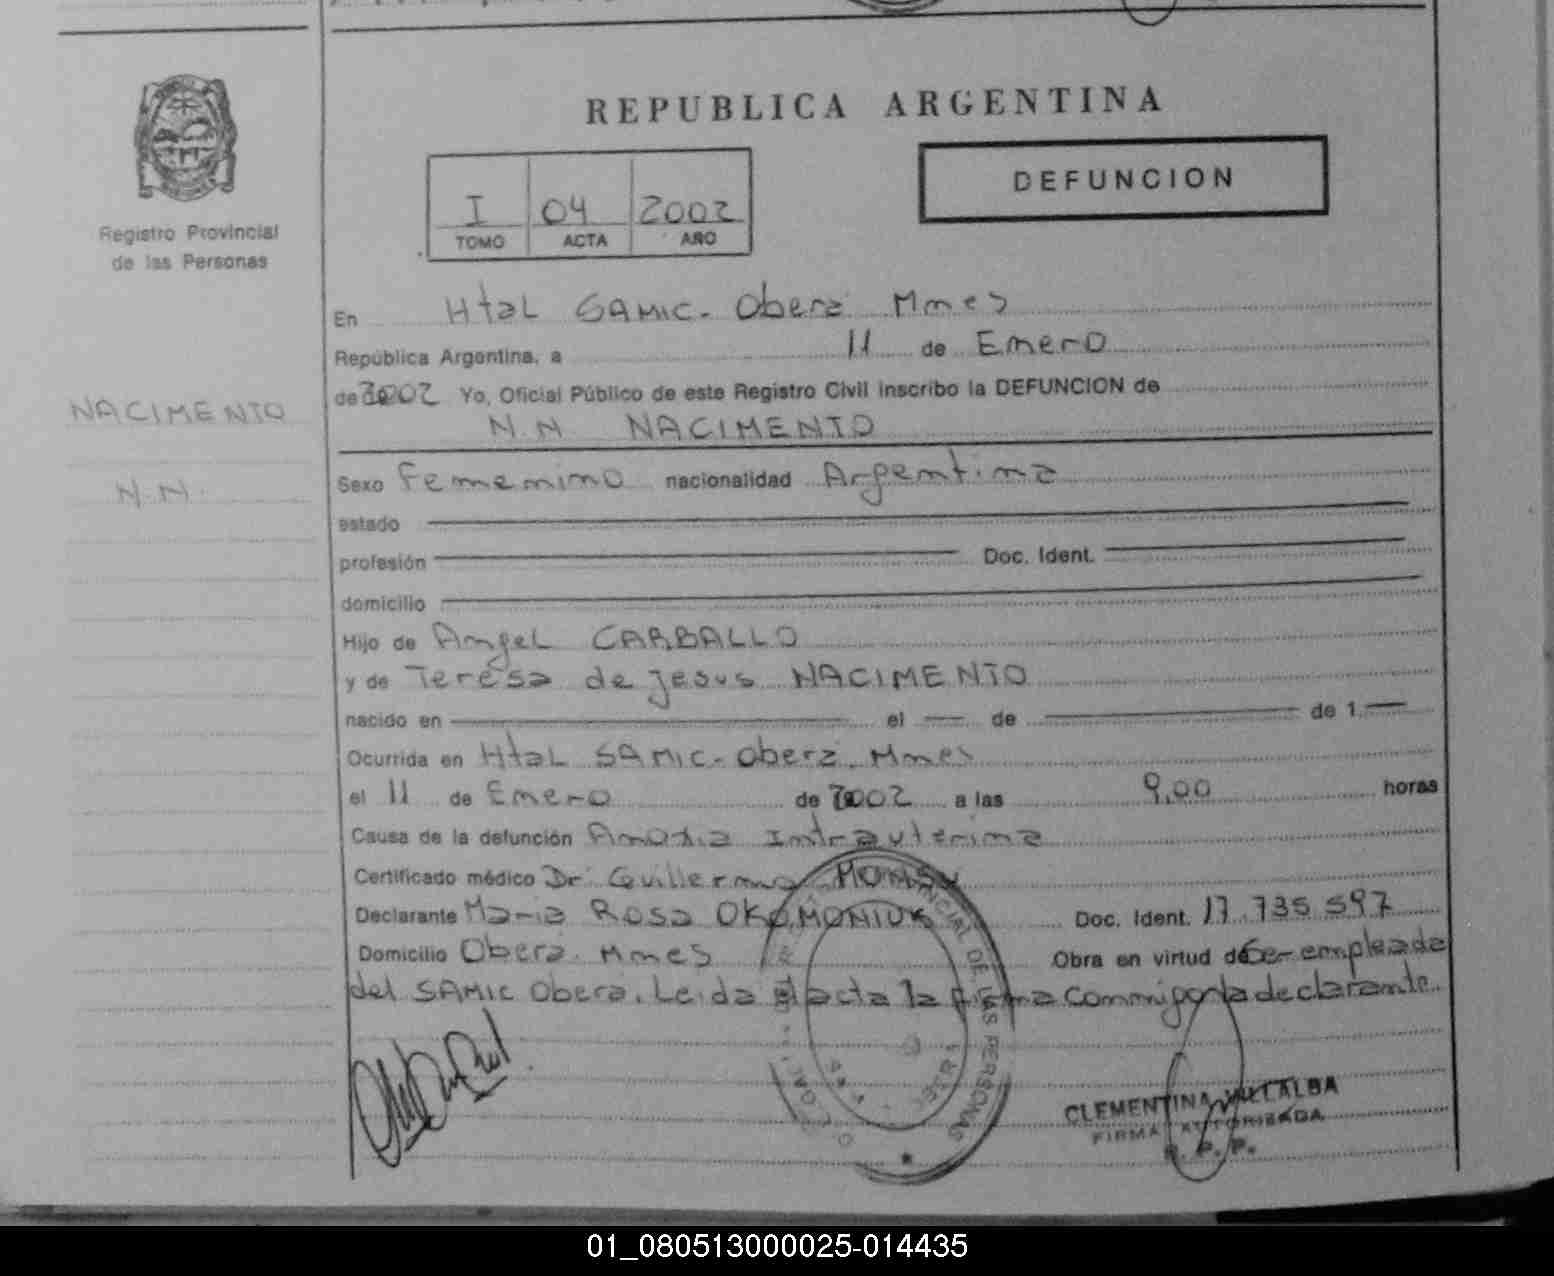 REPUBLICA ARGENTINA
DEFUNCION
I 04 2002
TOMO ACTA AÑO
Registro Provincial
de las Personas
NACIMENTO
N.N.
En Htal SAMIC- Oberá Mnes
República Argentina, a 11 de Enero
de 2002 Yo, Oficial Público de este Registro Civil inscribo la DEFUNCION de
N.N NACIMENTO
Sexo Femenino nacionalidad Argentina
estado
profesión Doc. Ident.
domicilio
Hijo de Angel CARBALLO
y de Teresa de Jesus NACIMENTO
nacido en el de de 1.
Ocurrida en Htal SAMIC- Oberá. Mnes
el 11 de Enero de 2002 a las 9,00 horas
Causa de la defunción Anoxia Intrauterina
Certificado médico Dr. Guillermo
Declarante Maria Rosa OKOMONIUK Doc. Ident. 17.735.597
Domicilio Oberá. Mnes Obra en virtud de Ser empleada
del SAMIC Oberá. Leida el acta la firma conmigo la declarante.
CLEMENTINA VILLALBA
FIRMA AUTORIZADA
R. P. P.
PROVINCIAL DE LAS PERSONAS
01_080513000025-014435